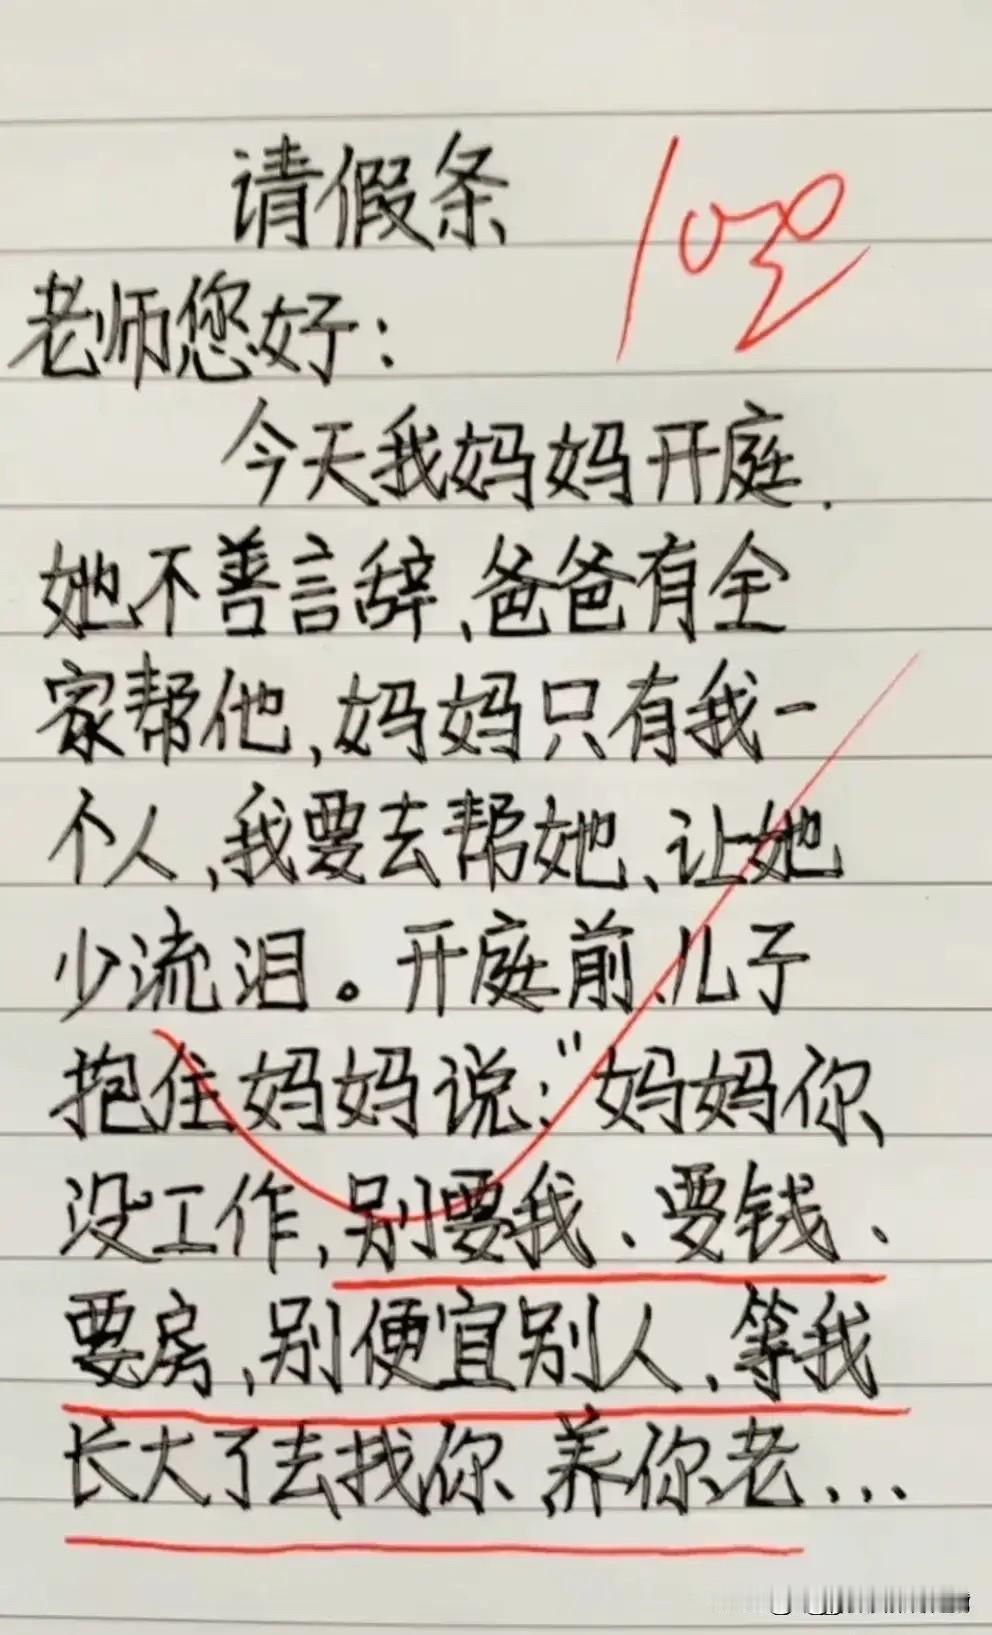 请假条
100
老师您好:
今天我妈妈开庭.
她不善言辞、爸爸有全
家帮他,妈妈只有我一
个人,我要去帮她、让她
少流泪。开庭前、儿子
抱住妈妈说:"妈妈你
没工作,别要我、要钱、
要房,别便宜别人、等我
长大了去找你、养你老...